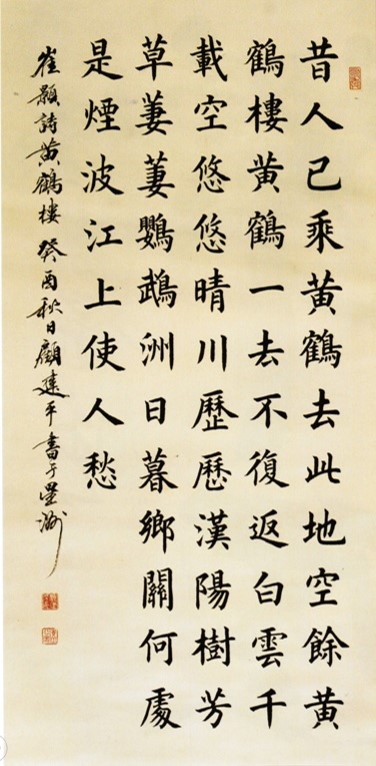 昔人已乘黄鶴去此地空餘黄
鶴樓黄鶴一去不復返白雲千
載空悠悠晴川歷歷漢陽樹芳
草萋萋鸚鵡洲日暮鄉關何處
是煙波江上使人愁
崔顥詩黄鶴樓 癸酉秋日顧建平書于星洲